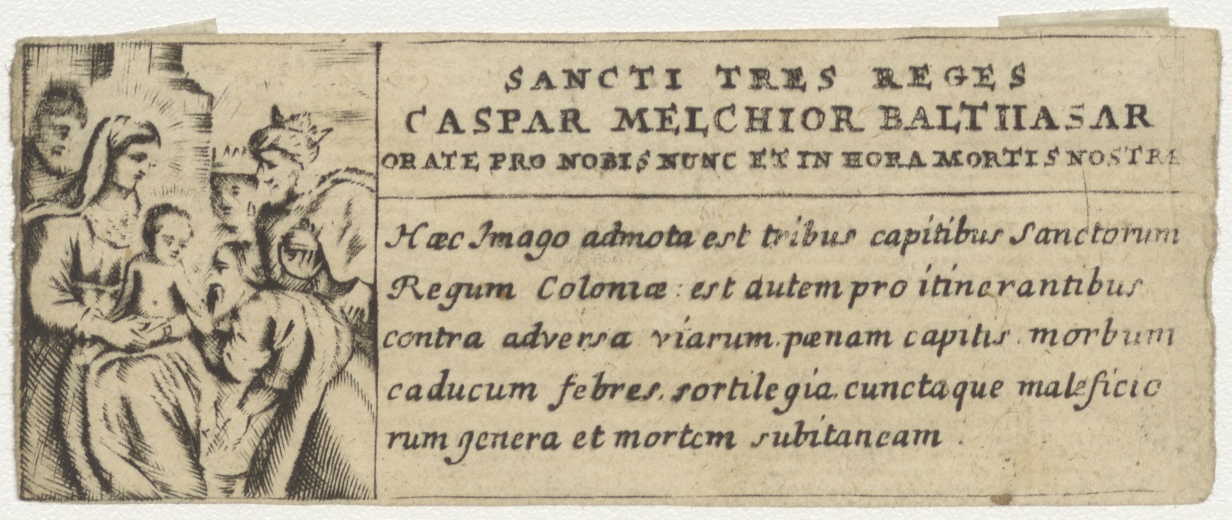 SANCTI TRES REGES
CASPAR MELCHIOR BALTHASAR
ORATE PRO NOBIS NUNC ET IN HORA MORTIS NOSTRE
Hæc Imago admota est tribus capitibus Sanctorum
Regum Coloniæ : est autem pro itinerantibus
contra adversa viarum. pœnam capitis. morbum
caducum febres. sortilegia. cunctaque maleficio
rum genera et mortem subitaneam .